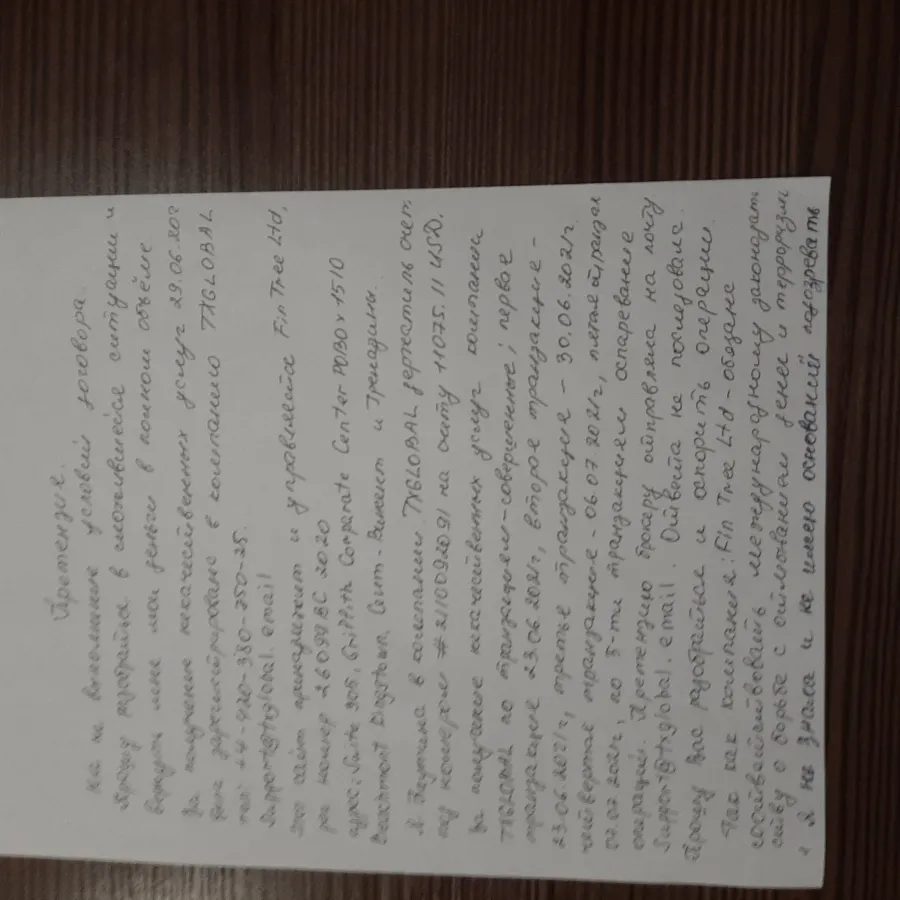 Претензия.
на не выполнение условий договора.
Прошу разобраться в сложившейся ситуации и
вернуть мне мои деньги в полном объёме
За получение некачественных услуг 29.06.202
была зарегистрирована в компанию TXGLOBAL
тел +4-420-380-350-25.
Support@txglobal.email
Это сайт принадлежит и управляется Fin Tree Ltd,
рег номер 26099 BC 2020
адрес: Suite 305, Griffith Corporate Center POBOX 1510
Beachmont Kingstown, Сент-Винсент и Гренадины.
Я в компании TXGLOBAL депозитный счет
под номером #211009291 на счету 11075.11 USD.
За получение некачественных услуг компании
TXGLOBAL по транзакциям-совершенные; первое
транзакция 23.06.2021г, второе транзакция -
23.06.2021г, третье транзакция - 30.06.2021г.
четвертое транзакция - 06.07.2021г, пятая транзак
07.07.2021г, по 5-ти транзакциям оспаривание
операций. Претензию брокеру отправляла на почту
Support@txglobal.email. Ответа не последовало.
Прошу Вас разобраться и оспорить операции
Так как компания: Fin Tree Ltd - обязана
соответствовать международному законодат
ству о борьбе с отмыванием денег и терроризм
Я не знала и не имею оснований подозревать